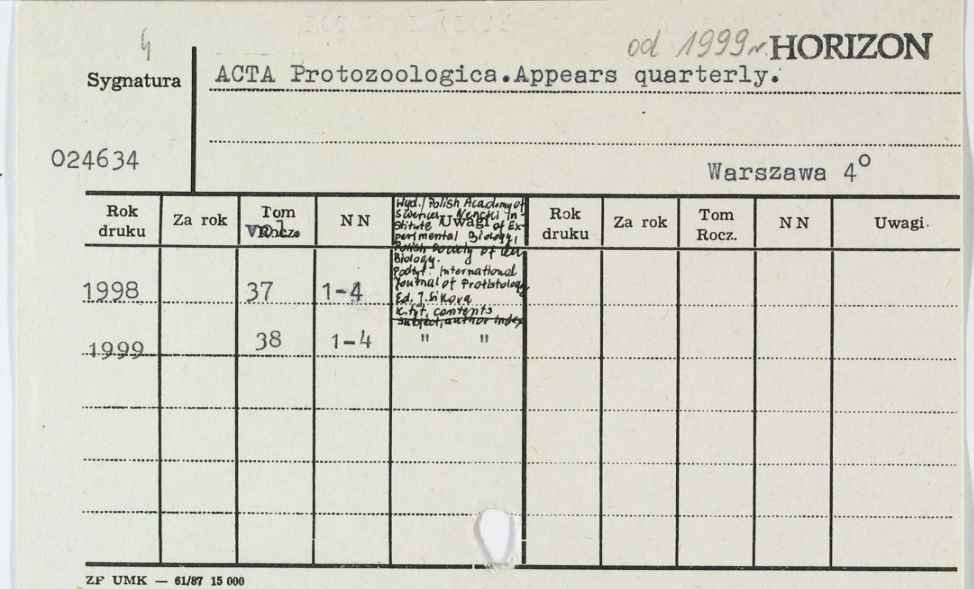 4 od 1999 r. HORIZON
Sygnatura ACTA Protozoologica.Appears quarterly.
024634
Warszawa 4°
Rok druku Za rok Tom Rocz. Vol. N N Uwagi Rok druku Za rok Tom Rocz. N N Uwagi
Wyd. Polish Academy of
Sciences, Nencki In-
stitute of Ex-
perimental Biology,
Polish Society of Cell
Biology.
Podtyt. International
Journal of Protistology
Ed. J. Sikora
K. tyt., contents
subject, author index
1998 37 1-4
1999 38 1-4 " "
ZP UMK — 61/87 15 000